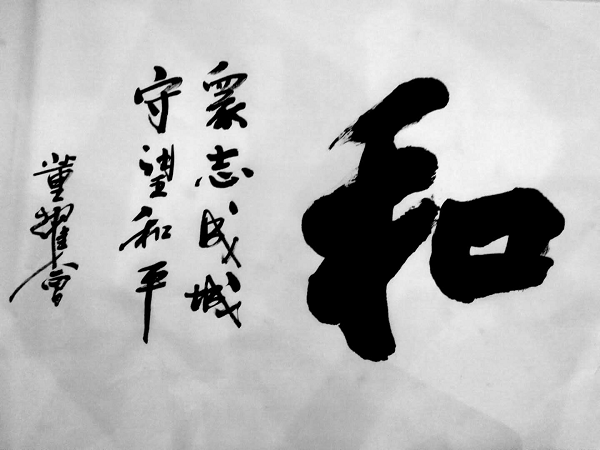 和
眾志成城
守望和平
董耀會